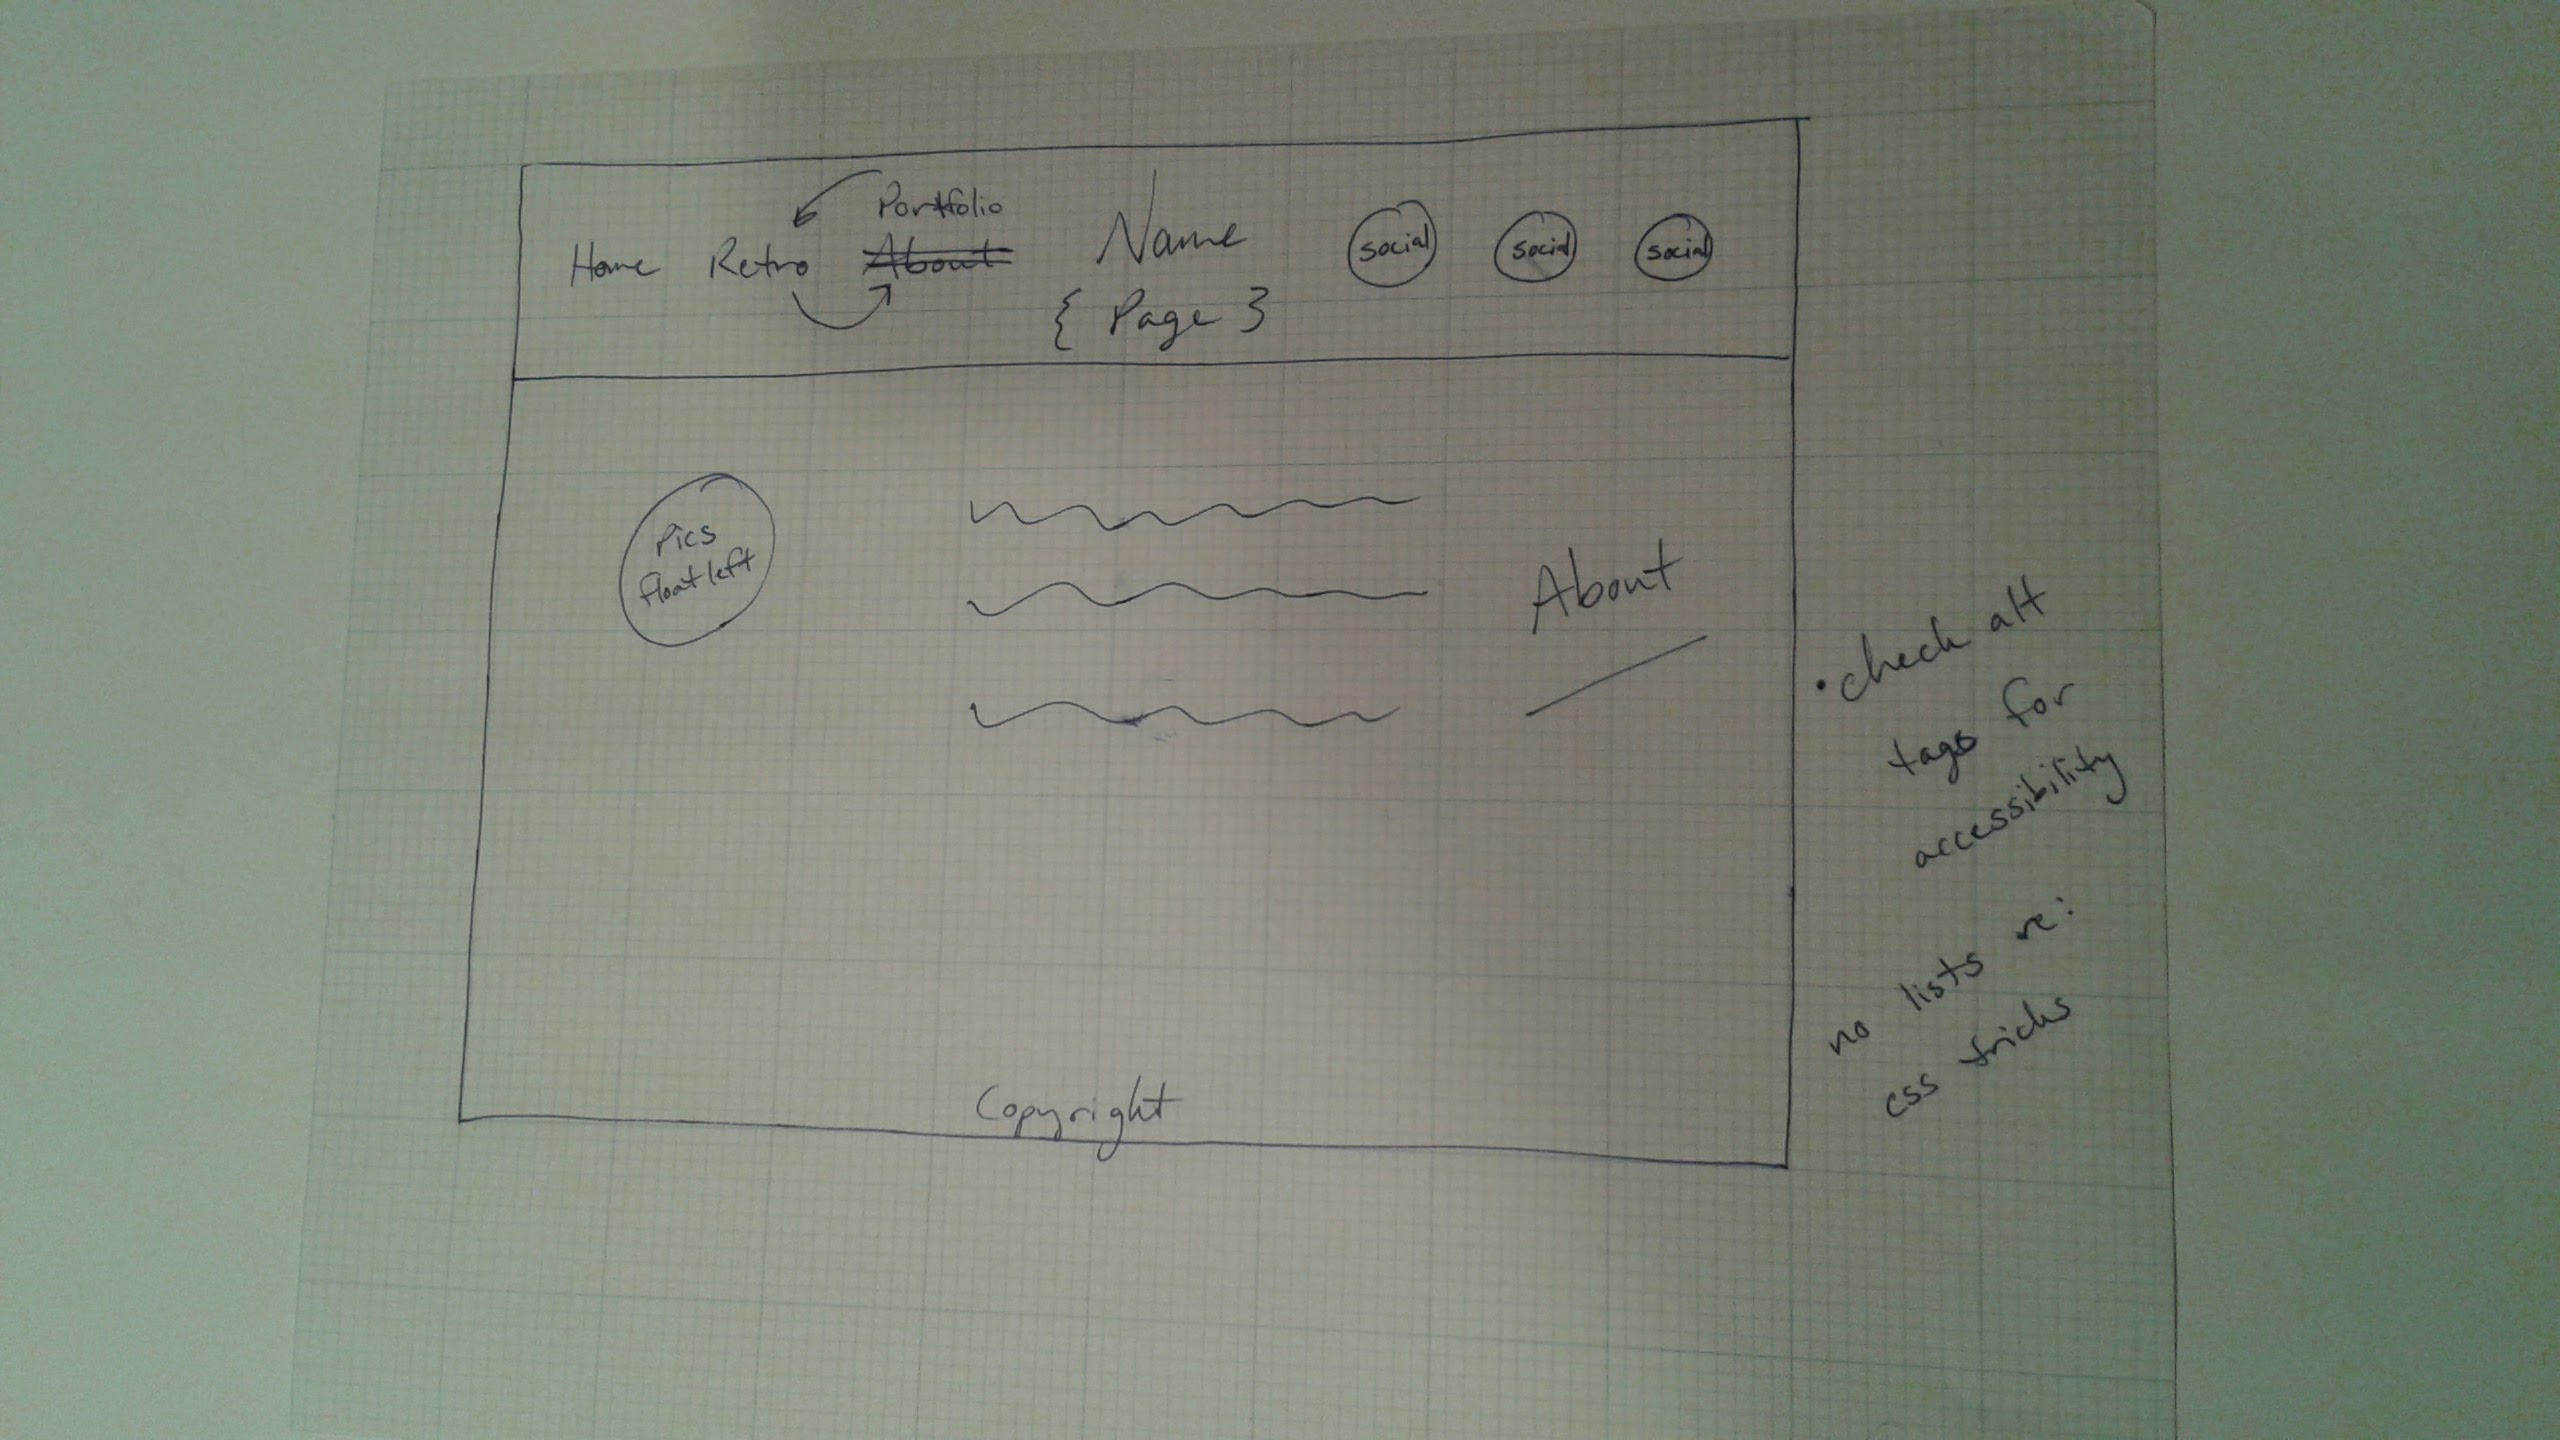 Portfolio
Home Retro About Name social social social
{ Page }
Pics
float left
About
• check alt
tags for
accessibility
no lists re:
css tricks
Copyright